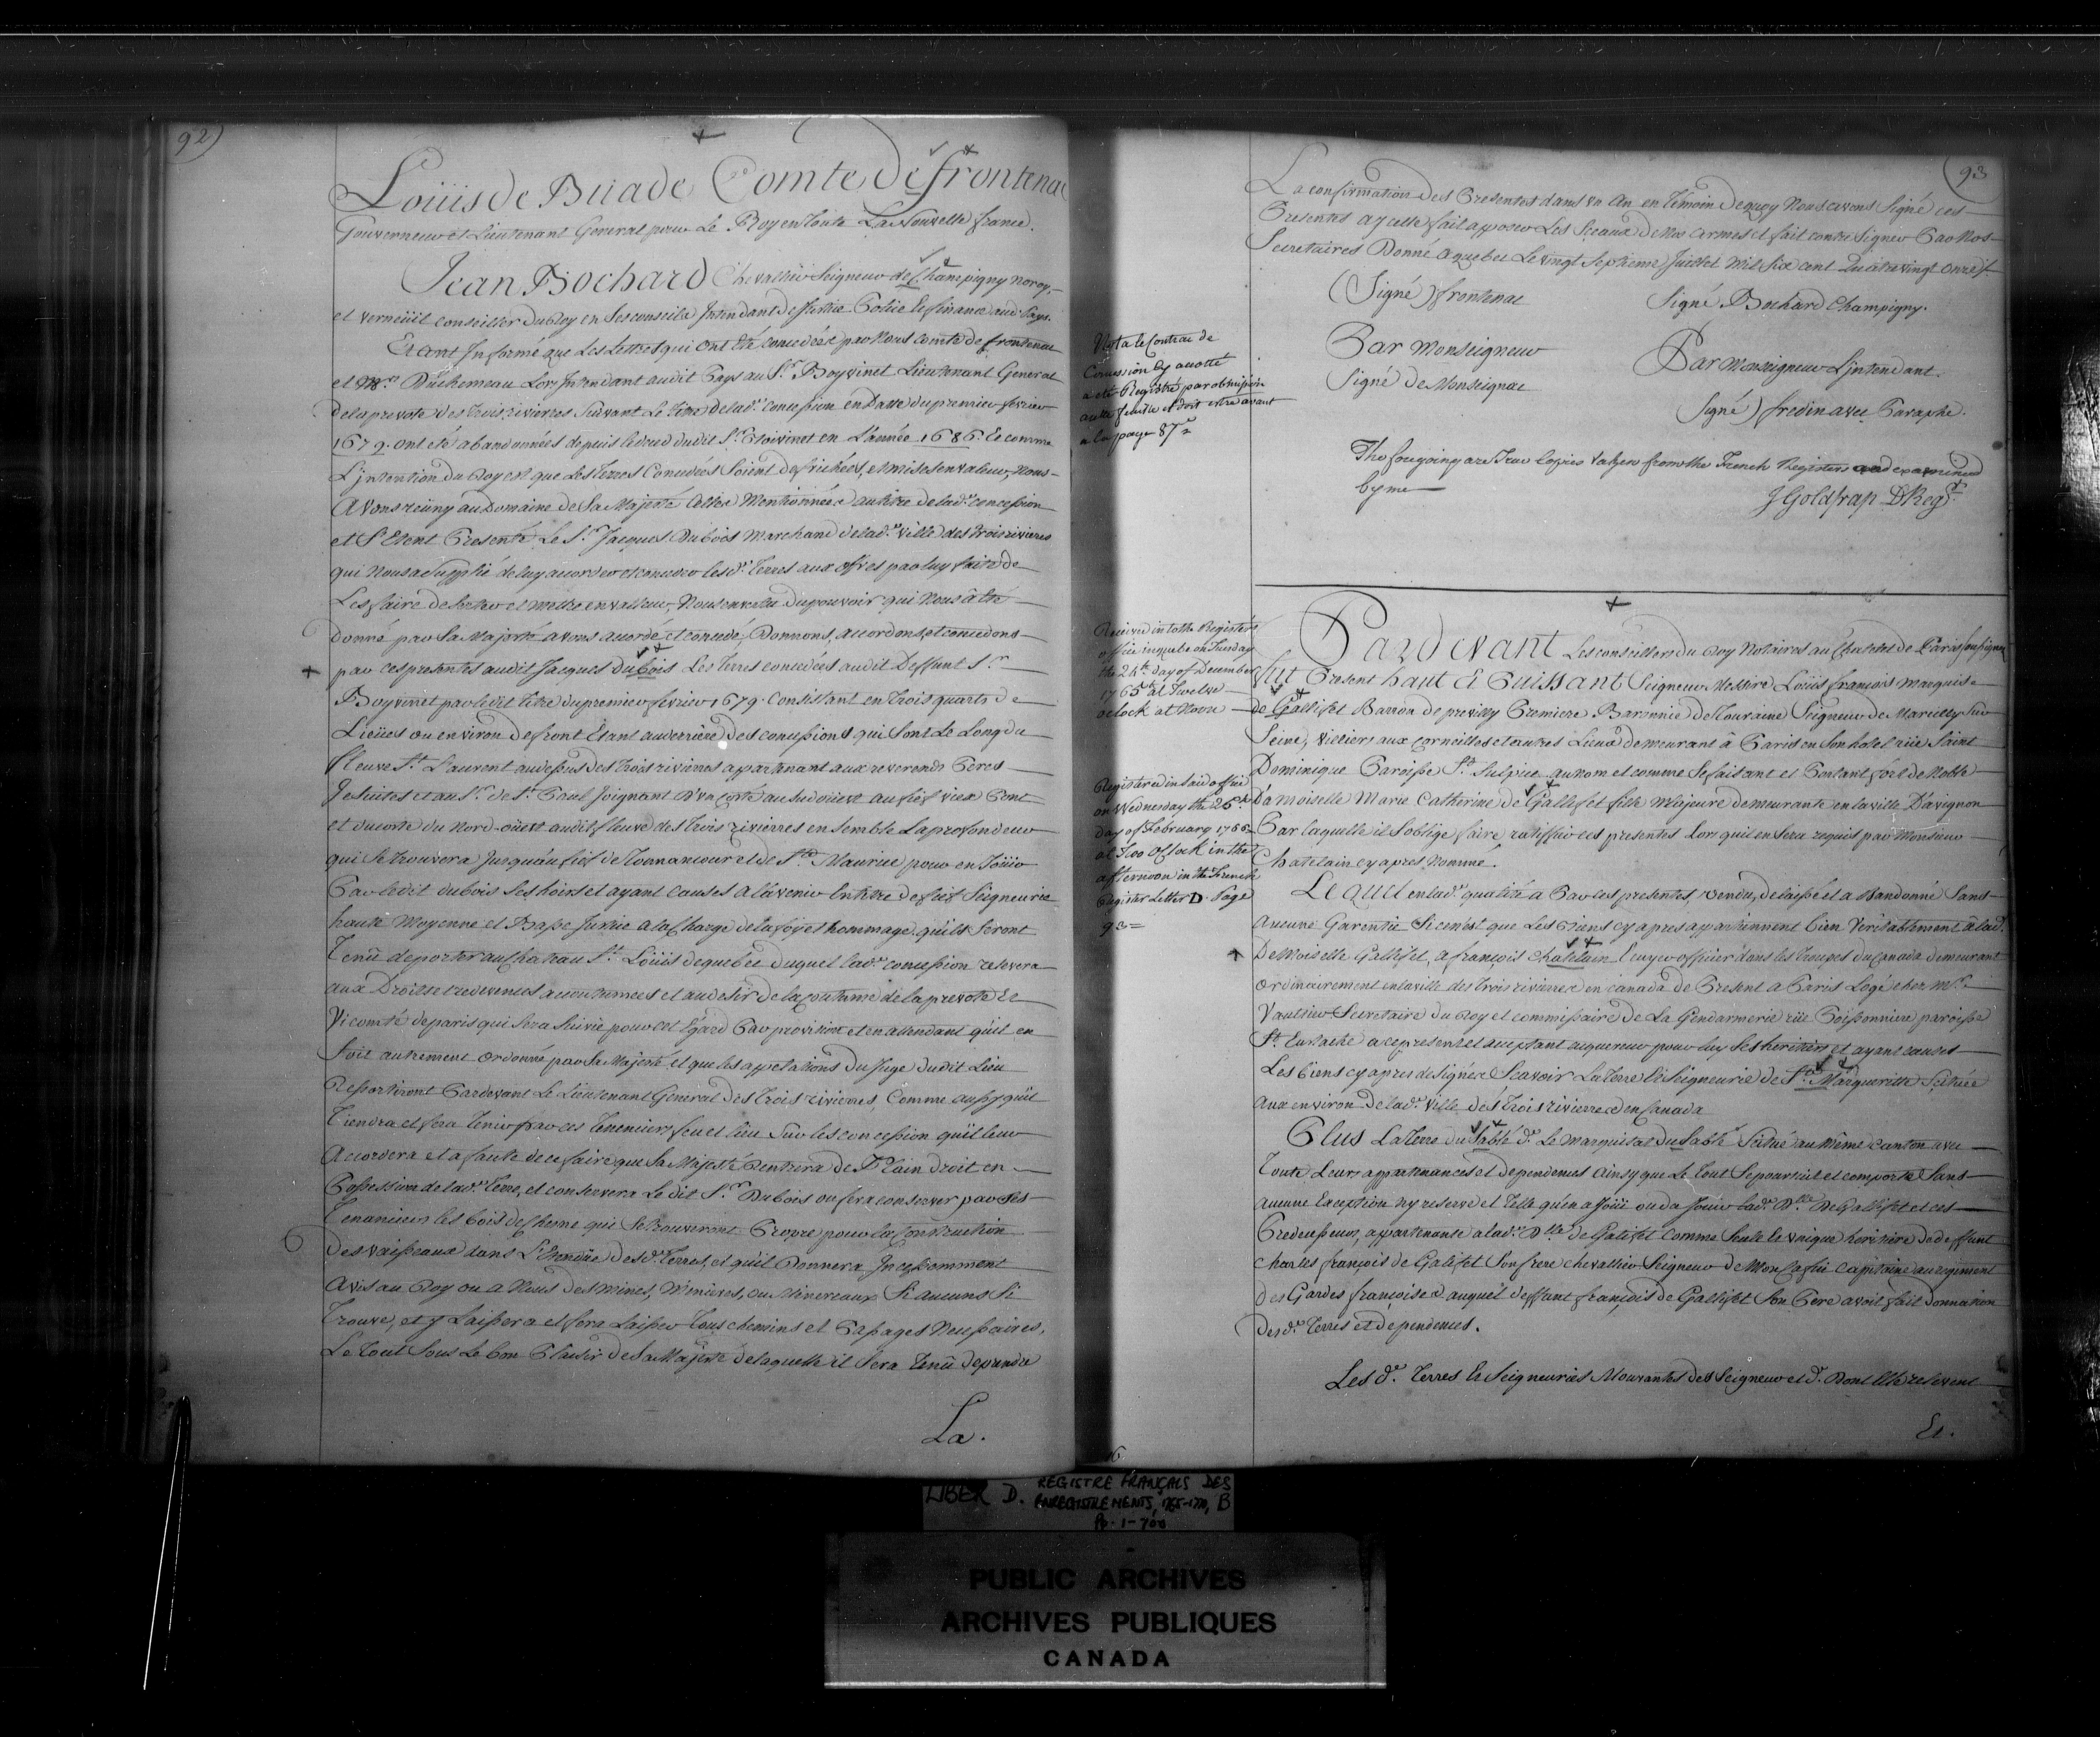 92)
Loüis de Büade Comte De frontenac
Gouverneur et Lieutenant General pour Le Roy en toute La Nouvelle france.
Jean Bochard Chevallier Seigneur de Champigny noroy,
et verneüil conseiller du Roy en ses conseils Intendant de Justice Police et finance aud. Pays.
Etant Informé que Les Lettres qui ont été concedées par Nous comte de frontenac
et Mr. Duchesneau Lors Intendant audit Pays au Sr. Boyvinet Lieutenant General
de la prevoté des trois rivieres Suivant Le titre de lade. concession en Datte du premier fevrier
1679. ont été abandonnées depuis le deced dudit Sr. Boivinet en L'année 1686. Et comme
L'jntention du Roy est que Les terres Concedées Soient defrichées, et mises en valeur, Nous
Avons reuny au Domaine de Sa Majesté Celles Mentionnées au titre de lade. concession
et S'Etant Presenté Le Sr. Jacques Dubois Marchand de lade. ville des trois rivieres
qui Nous a Supplié de luy accorder et conceder lesd. terres aux offres par luy faite de
Les faire deserter et mettre en valleur, Nous en vertu du pouvoir qui Nous à été
donné par Sa Majesté avons accordé et concedé, Donnons, accordons et concedons
par ces presentes audit Jacques Dubois Les terres concedées audit Deffunt Sr.
Boyvinet par ledit titre du premier fevrier 1679. Consistant en trois quarts de
Lieües ou environ de front Etant au derriere des concessions qui sont Le Long du
fleuve St. Laurent au dessus des trois rivieres apartenant aux reverends Peres
Jesuites et au Sr. de St. Paul Joignant d'un costé au Sud oüest au fief vieux Pont
et du costé du Nord-oüest audit fleuve des trois rivierres ensemble La profondeur
qui se trouvera Jusqu'au fief de Tonnancour et de St. Maurice pour en Joüir
Par ledit dubois Ses hoirs et ayant causes a l'avenir En titre de fief Seigneurie
haute Moyenne et Basse Justice a la Charge de la foy et hommage qu'ils seront
Tenû de porter au Chateau St. Loüis de quebec duquel lade. concession relevera
aux Droits et redevences accoutumées et au desir de la coutume de la prevoté et
Vicomté de paris qui sera Suivie pour cet Egard Par provision et en attendant qu'il en
Soit autrement ordonné par Sa Majesté et que les appelations du Juge dudit Lieu
Ressortiront Pardevant Le Lieutenant General des trois rivierres, Comme aussy qu'il
Tiendra et fera tenir par ces tenenciers feu et lieu Sur les concession qu'il leur
Accordera et a faute de ce faire que Sa Majesté Rentrera de Plain Droit en
Possession de lade. terre, et conservera Le dit Sr. Dubois ou fera conserver par Ses
Tenanciers les bois de chesne qui se trouveront Propre pour la Construction
des vaisseaux dans L'Etendüe desd. terres, et qu'il Donnera Incessamment
Avis au Roy ou a Nous des Mines, Minieres, ou Minereaux Si aucuns Si
Trouve, et y Laissera et fera Laisser tous chemins et Passages Necessaires,
Le tout Sous Le bon Plaisir de Sa Majesté de laquelle il Sera tenü de prendre
La.
93
La confirmation des Presentes dans un An en temoin de quoy Nous avons Signé ces
Presentes a y celle fait apposer Les Sceaux de Nos armes et fait contre Signer Par Nos
Secretaires Donné a quebec Le vingt Septieme Juillet Mil Six cent Quatre vingt onze
(Signé) frontenac
Signé Bochard Champigny.
Par Monseigneur
Signé De Monseignat
Par Monseigneur L'jntendant.
Signé) fredin avec Paraphe.
Nota le Contrat de
Concession Cy acotté
a eté Registré par obmission
a cette feuille et doit estre avant
a la page 87e
The foregoing are True Copies taken from the French Registers and examined
by me
J Goldfrap D Regr.
Received into the Registers
office in quebec on Tuesday
the 24th. day of December
1765 at Twelve
oclock at Noon
Registered in said office
on Wednesday the 26th
day of February 1766
at Two OClock in the
afternoon in the French
Register Letter D. Page
93=
Pardevant Les conseillers du Roy Notaires au Chatelet de Paris Soussignez
fut Present haut & Puissant Seigneur Messire Loüis françois Marquis
de Gallifet Barron de previlly Premiere Baronnie de Touraine Seigneur de Marcilly Sur
Seine, villiers aux corneilles et autres Lieux demeurant à Paris en Son hotel rüe Saint
Dominique Paroisse St. Sulpice au nom et comme Se faisant et Portant fort de Noble
D'amoiselle Marie Catherine de Gallifet fille Majeure demeurante en la ville D'avignon
Par laquelle il S'oblige faire ratiffier ces presentes Lors quil en Sera requis par Monsieur
Chatelain cy apres Nommé.
Lequel en lade. qualité a Par ces presentes, vendu, delaissé et a Bandonné Sans
aucune Garentie Si ce n'est que Les Biens cy apres appartiennent bien Veritablement à lad.
DeMoiselle Gallifet, a françois Chatelain Ecuyer officier dans les troupes du Canada demeurant
ordinairement en la ville des trois rivierres en Canada de Present a Paris Logé chez Mr.
Vautier Secretaire du Roy et commissaire de La Gendarmerie rüe Poissonniere paroisse
St. Eustache a ce present et acceptant acquereur pour luy Ses heritiers et ayant causes
Les biens cy apres designée Scavoir La terre & Seigneurie de Ste. Margueritte Scituée
aux environ de lade. ville des trois rivierres en Canada
Plus La terre du Sablé d. Le Marquisat du Sablé Scitué au Même canton avec
Toute Leurs appartenances et dependences ainsy que Le tout Se poursuit et comporte Sans
aucune Exception ny reserve et telle qu'en a Joüi ou da Jouir lade. Dlle. De Gallifet et ces
Predecesseurs, appartenante a lade. Dlle. de Galifet comme Seule & unique heritiere de deffunt
Charles françois de Galifet Son frere chevallier Seigneur de Mon Caplir Capitaine au regiment
des Gardes françoises auquel deffunt françois de Gallifet Son Pere avoit fait donnation
Desd. terres et dependences.
Les d. terres & Seigneuries Mouvantes des Seigneur et d. Dont Elle relevent
Et.
LIBER D. REGISTRE FRANÇAIS DES
ENREGISTREMENTS, 1765-1770, B
pp. 1-700
PUBLIC ARCHIVES
ARCHIVES PUBLIQUES
CANADA